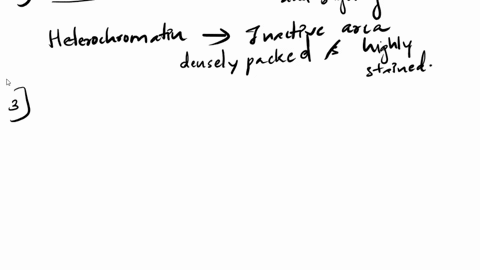 Heterochromatin → Inactive area
densely packed & highly
stained.
3]